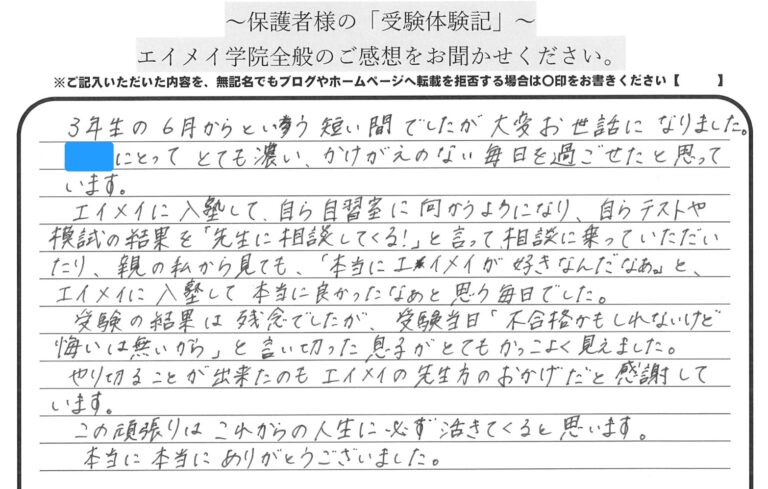 ～保護者様の「受験体験記」～
エイメイ学院全般のご感想をお聞かせください。
※ご記入いただいた内容を、無記名でもブログやホームページへ転載を拒否する場合は〇印をお書きください【　　　】
3年生の6月からという短い間でしたが大変お世話になりました。
にとってとても濃い、かけがえのない毎日を過ごせたと思って
います。
エイメイに入塾して、自ら自習室に向かうようになり、自らテストや
模試の結果を「先生に相談してくる！」と言って相談に乗っていただい
たり、親の私から見ても、「本当にエイメイが好きなんだなぁ。」と、
エイメイに入塾して本当に良かったなぁと思う毎日でした。
受験の結果は残念でしたが、受験当日「不合格かもしれないけど
悔いは無いから」と言い切った息子がとてもかっこよく見えました。
やり切ることが出来たのもエイメイの先生方のおかげだと感謝して
います。
この頑張りはこれからの人生に必ず活きてくると思います。
本当に本当にありがとうございました。